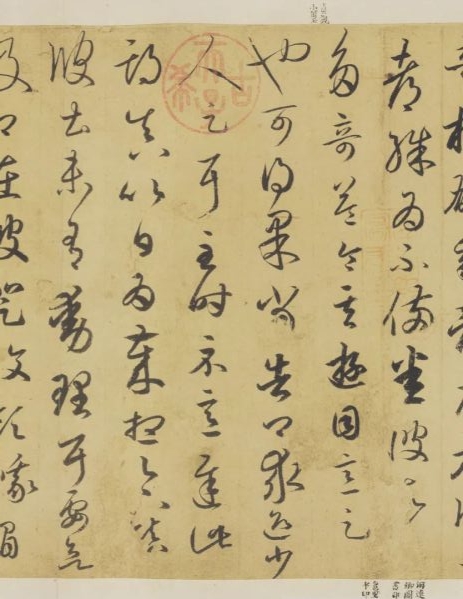 都殊為不備悉彼故為
多奇益令其遊目意足
也可得果當告卿求迎少
人足耳至時示意遲此
期真以日為歲想足下鎮
彼土未有動理耳要欲
及卿在彼登汶領峨眉
古希天子